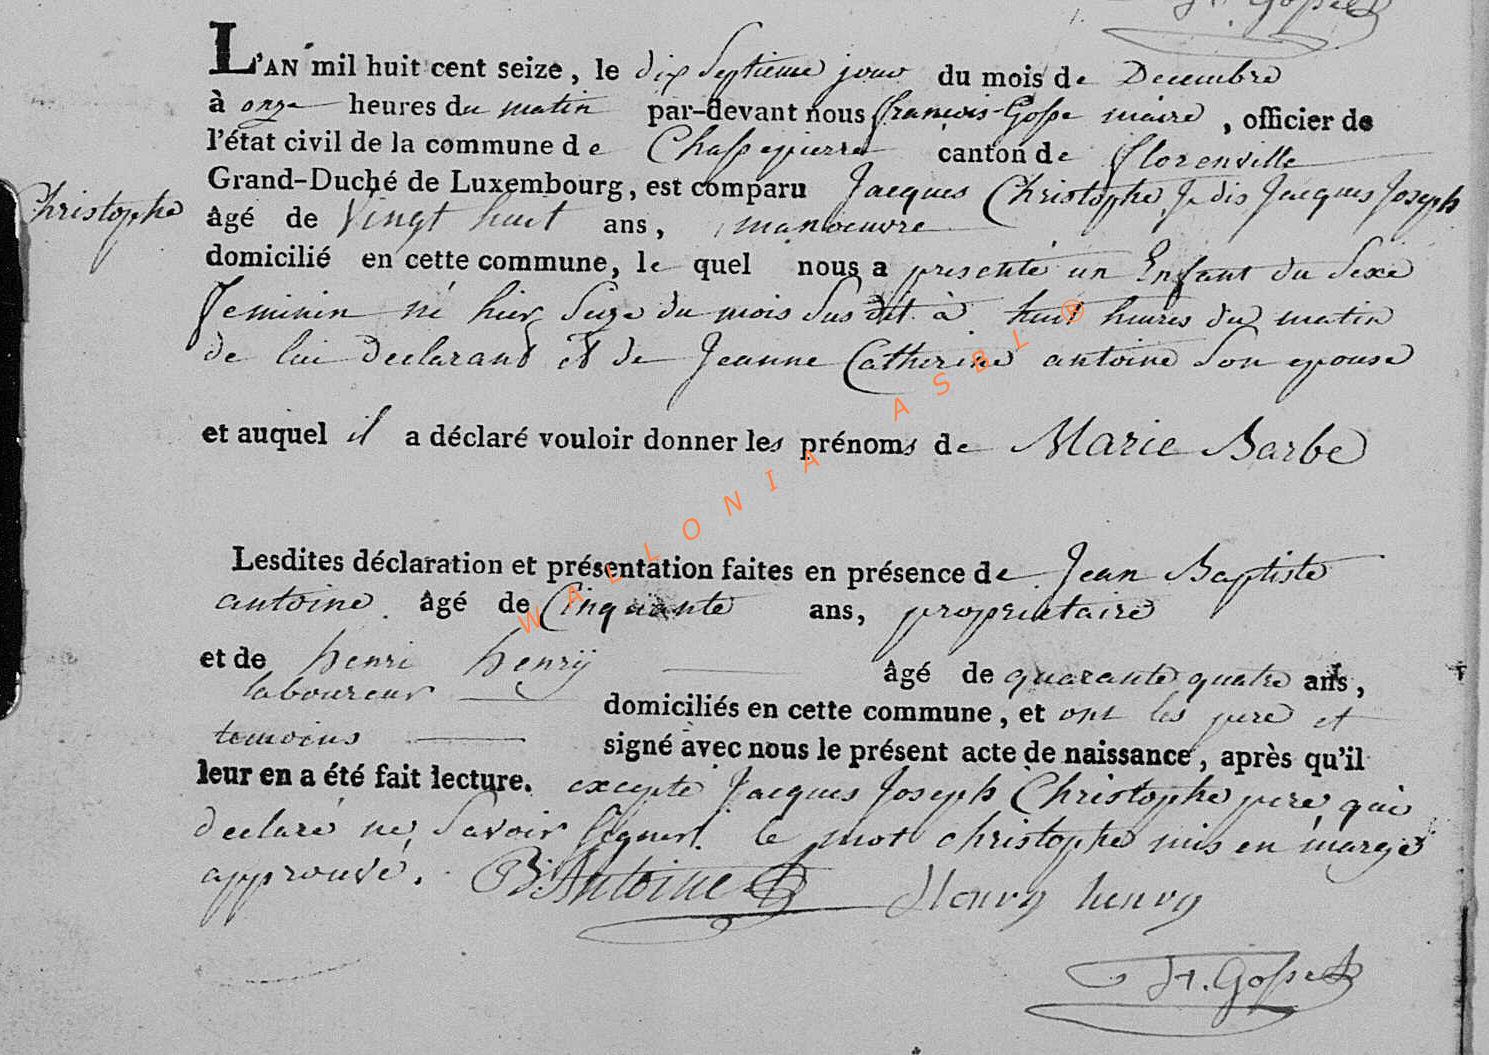 F. Gosse
L'AN mil huit cent seize, le dix Septieme jour du mois de Decembre
à onze heures du matin par-devant nous françois Gosse maire, officier de
l'état civil de la commune de Chassepierre canton de florenville
Grand-Duché de Luxembourg, est comparu Jacques Christophe Je dis Jacques Joseph
Christophe
âgé de Vingt huit ans, manoeuvre
domicilié en cette commune, le quel nous a presenté un Enfant du Sexe
feminin né hier Seize du mois Sus dit à huit heures du matin
de lui declarant et de Jeanne Catherine antoine Son epouse
et auquel il a déclaré vouloir donner les prénoms de Marie Barbe
Lesdites déclaration et présentation faites en présence de Jean Baptiste
antoine âgé de Cinquante ans, proprietaire
et de henri henrÿ âgé de quarante quatre ans,
laboureur domiciliés en cette commune, et ont les pere et
temoins signé avec nous le présent acte de naissance, après qu'il
leur en a été fait lecture. excepte Jacques Joseph Christophe pere qui
declare ne Savoir Signer. le mot christophe mis en marge
approuvé.
B. Antoine Henry henry
F. Gosse
WALLONIA ASBL ®